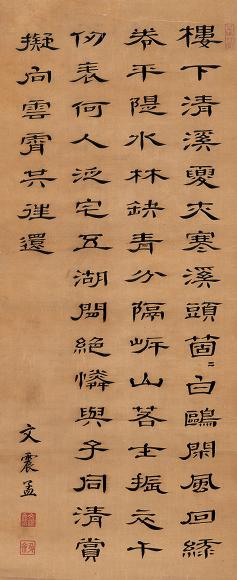 樓下清溪夏亦寒溪頭箇〻白鷗閑風回綠
卷平隄水林缺青分隔岸山若士振衣千
仞表何人泛宅五湖間絕憐與子同清賞
擬向雲霄共往還
文震孟